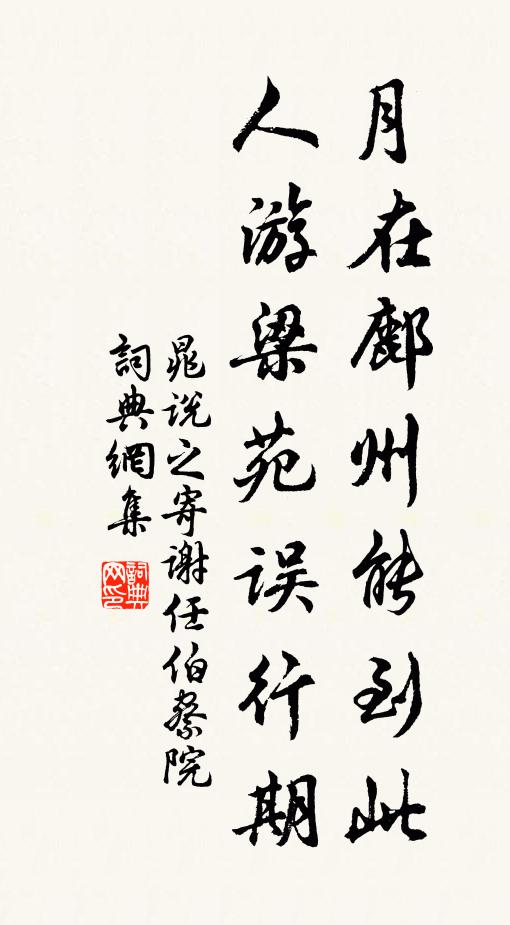 月在鄜州能到此
人游梁苑误行期
晁说之寄谢任伯察院
詞典網集
詞典网印